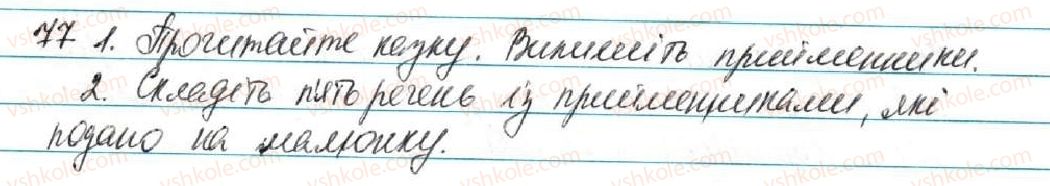 77 1. Прочитайте казку. Випишіть прийменники.
2. Складіть п'ять речень із прийменниками, які
подано на малюнку.